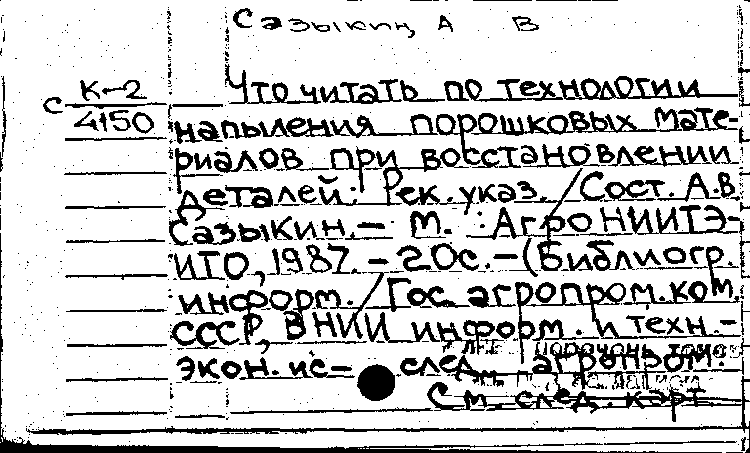 Сазыкин, А В
К-2
с 4150
Что читать по технологии
напыления порошковых мате-
риалов при восстановлении
деталей: Рек. указ. / Сост. А.В.
Сазыкин. - М. : АгроНИИТЭ-
ИТО, 1987. - 20с. - (Библиогр.
информ. / Гос. агропром. ком.
СССР, ВНИИ информ. и техн.-
экон. ис- след. агропром.
См. след. карт.